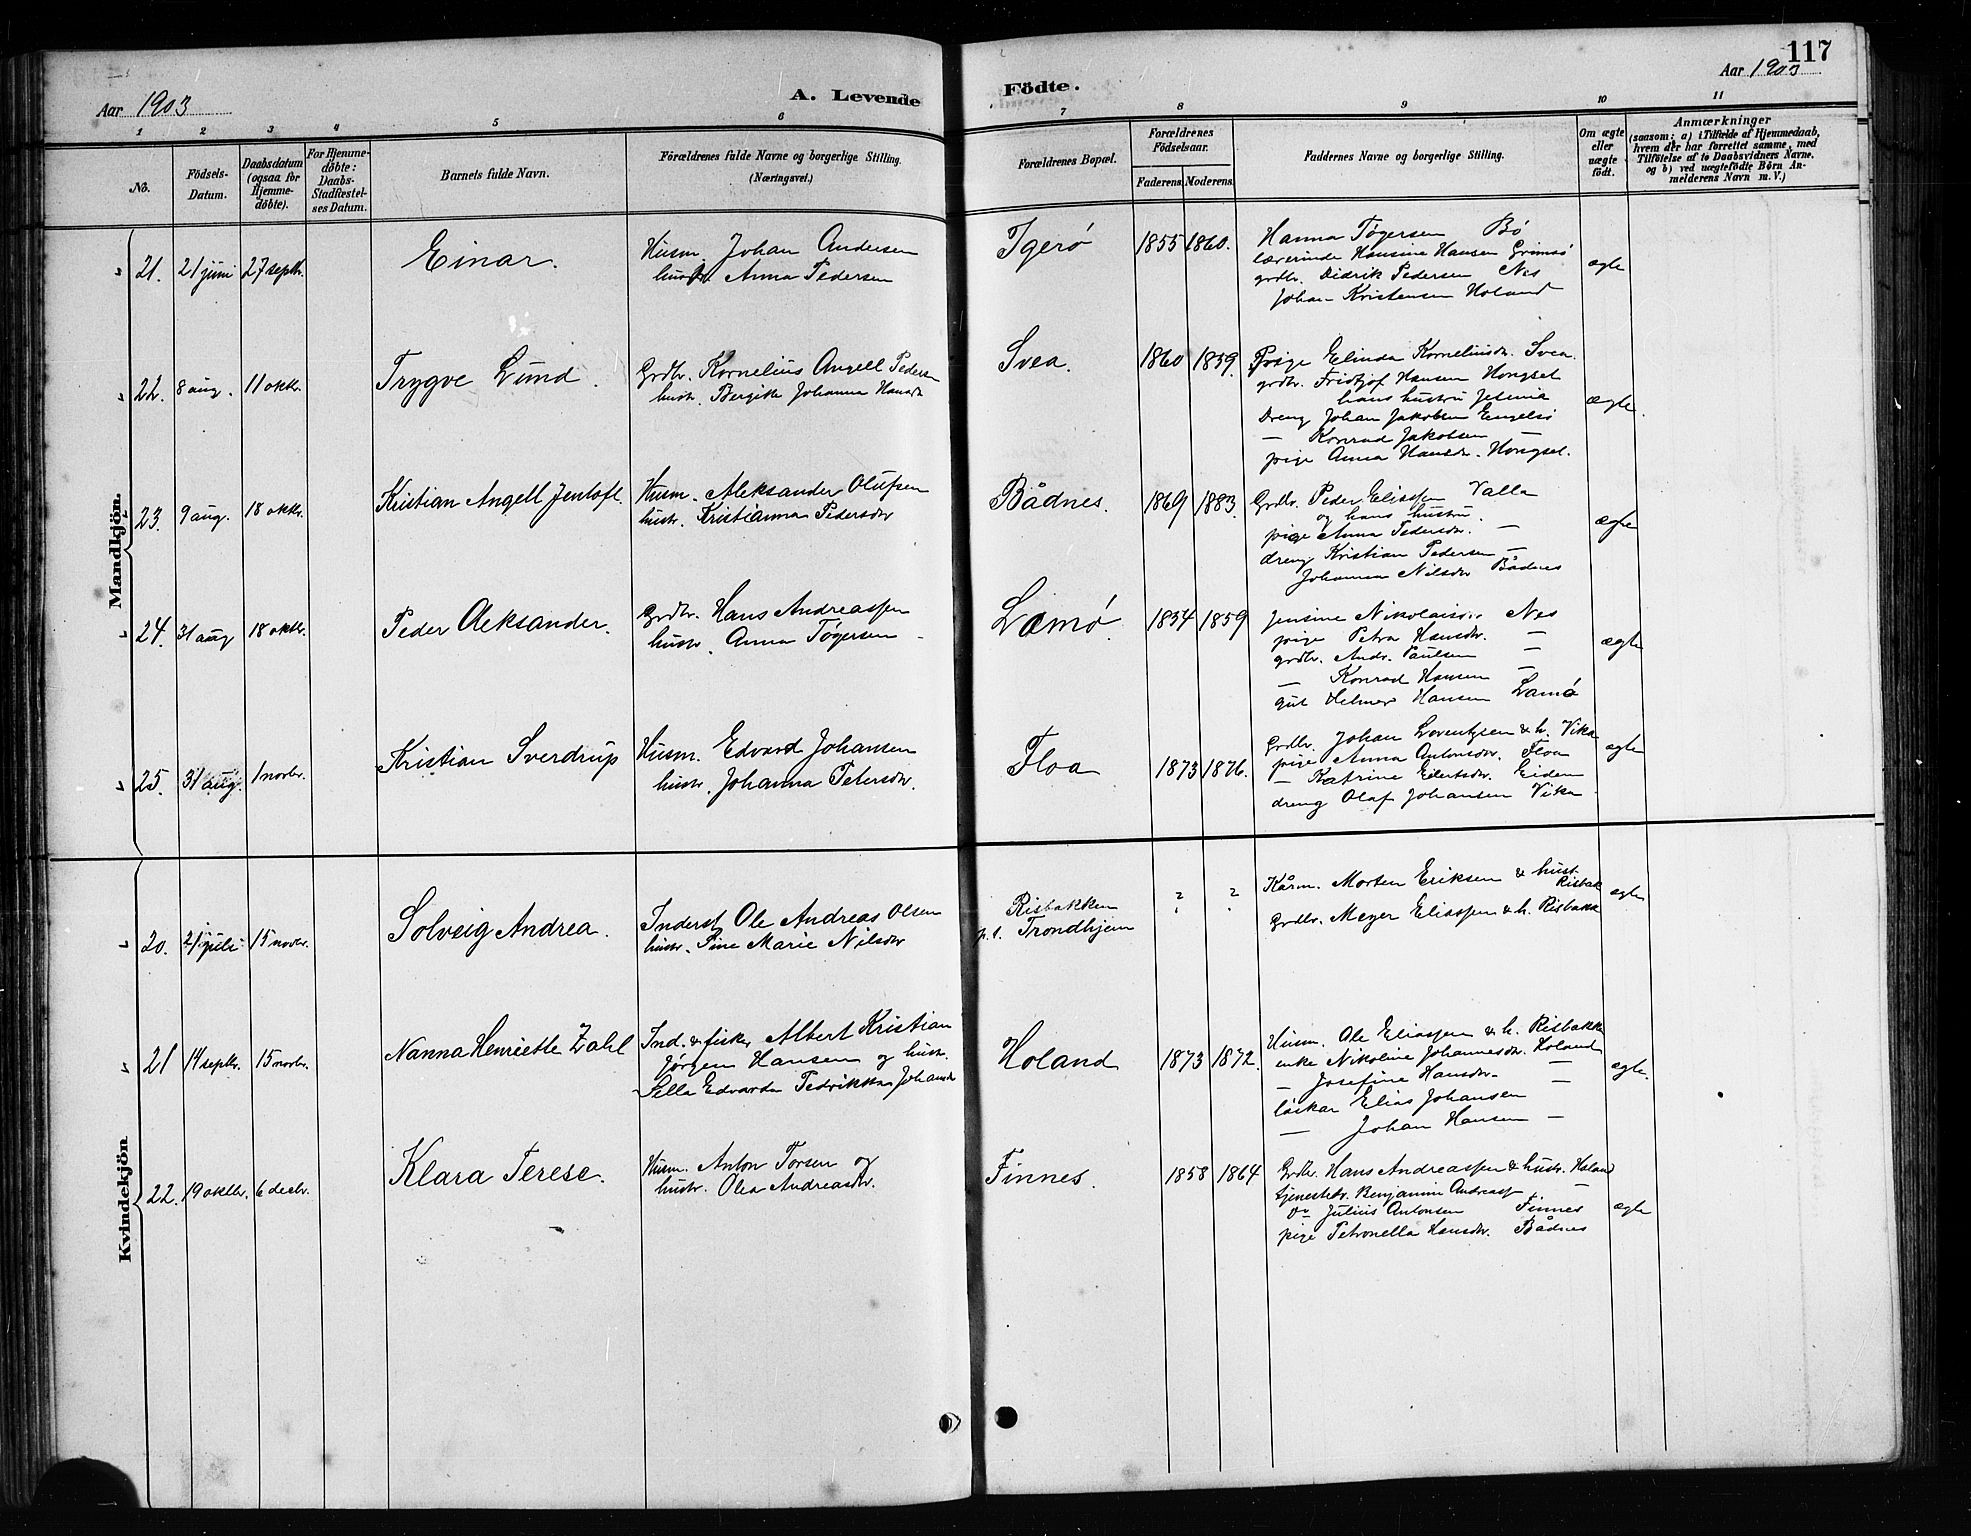 117
Aar 1903
A. Levende Födte.
Aar 1903
1 2 3 4 5 6 7 8 9 10 11
No.
Födsels-Datum.
Daabsdatum (ogsaa for Hjemmedöbte).
For Hjemmedöbte: Daabs-Stadfæstelses Datum.
Barnets fulde Navn.
Forældrenes fulde Navne og borgerlige Stilling.
(Næringsvei.)
Forældrenes Bopæl.
Forældrenes Födselsaar.
Faderens. Moderens.
Faddernes Navne og borgerlige Stilling.
Om ægte eller uægte födt.
Anmærkninger
(saasom: a) i Tilfælde af Hjemmedaab,
hvem der har forrettet samme, med
Tilföielse af to Daabsvidners Navne.
og b) ved uægtefödte Börn An-
melderens Navn m. V.)
Mandkjön.
21. 21 juni 27 septb. Einar.
Husm. Johan Andersen
hustr. Anna Pedersen
Igerø 1855 1860.
Hanna Tøgersen Bø
lærerinde Hansine Hansen Grimsø
grdbr. Didrik Pedersen Nes
Johan Kristensen Holand
ægte
22. 8 aug. 11 oktbr. Trygve Lund.
Grdbr. Kornelius Angell Pedersen
hustr. Bergitte Johanna Hansdr
Svea. 1860 1859.
Pige Elinda Korneliusdr. Svea.
grdbr. Fridtjof Hansen Hongset
hans hustru Jesine
Dreng Johan Jakobsen Engelsø
— Konrad Jakobsen
pige Anna Hansdr. Hongset.
ægte.
23. 9 aug. 18 oktbr. Kristian Angell Jentoft.
Husm. Aleksander Olufsen
hustr. Kristianna Pedersdr
Bådnes. 1869 1883.
Grdbr. Peder Eliassen Valla
og hans hustru.
pige Anna Pedersdr. —
dreng Kristian Pedersen —
Johanna Nilsdr Bådnes
ægte
24. 31 aug 18 oktbr. Peder Aleksander.
Grdbr. Hans Andreassen
hustr. Anna Tøgersen
Lamø. 1854 1859
Jensine Nikolaisdr. Nes
pige Petra Hansdr. —
grdbr. Andr. Paulsen —
— Konrad Hansen —
gut Helmer Hansen Lamø
ægte
25. 31 aug. 1 novbr. Kristian Sverdrup
Husm. Edvard Johansen
hustr. Johanna Petersdr.
Floa 1873 1876.
Grdbr. Johan Lorentzsen & h. Vika
pige Anna Antonsdr. Floa
— Katrine Eilertsdr. Eiden
dreng Olaf Johansen Vika
ægte
Kvindekjön.
20. 21 juli 15 novbr. Solveig Andrea.
Inderst Ole Andreas Olsen
hustr. Pine Marie Nilsdr
Risbakken
p.t. Trondhjem
? ?
Kårm. Morten Eriksen & hust. Risbak
Grdbr. Meyer Eliassen & h. Risbakk
ægte
21 14 septbr. 15 novbr. Nanna Henriette Zahl
Ind. & fisker Albert Kristian
Jørgen Hansen og hustr.
Sella Edvarda Fedrikka Johansd
Holand 1873 1872.
Husm. Ole Eliassen & h. Risbakk
enke Nikoline Johannesdr. Holand
— Josefine Hansdr. —
løskar Elias Johansen
— Johan Hansen —
ægte.
22. 19 oktbr. 6 decbr. Klara Terese.
Husm. Anton Torsen og
hustr. Olea Andreasdr.
Finnes. 1858 1864
Grdbr. Hans Andreassen & hustr. Holand
tjenestedr. Benjamin Andreass. —
Do Julius Antonsen Finnes
pige Petronella Hansdr. Bådnes
ægte